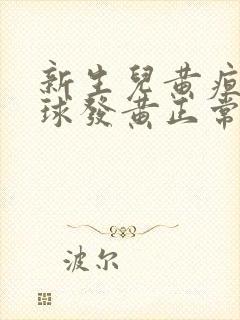 新生兒黃疸
球發黃正常
波尔